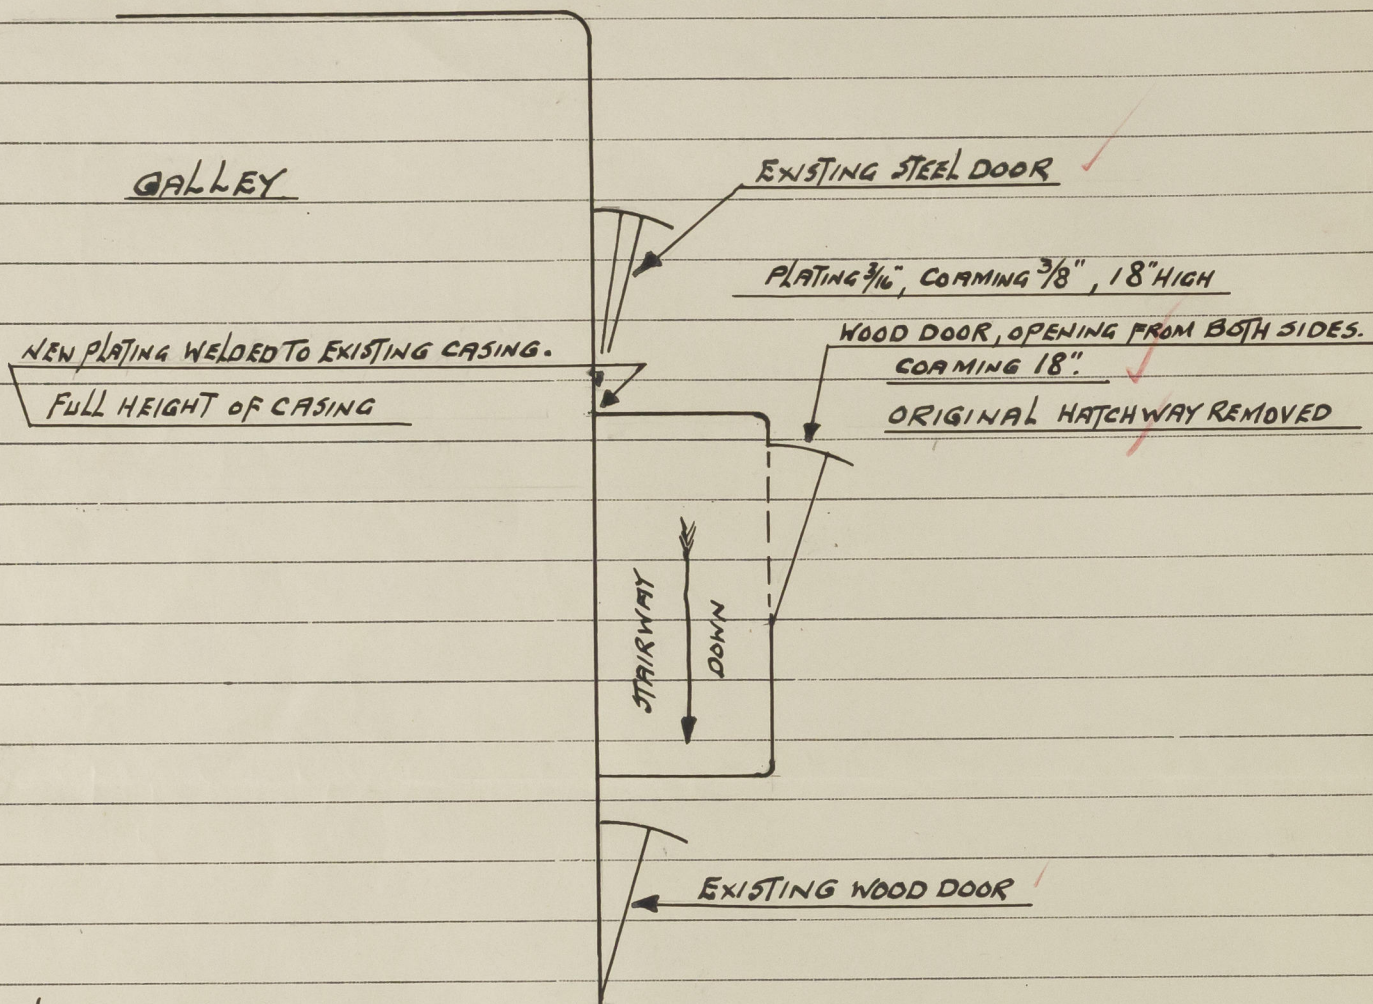 GALLEY
EXISTING STEEL DOOR
PLATING 3/16", COAMING 3/8", 18" HIGH
NEW PLATING WELDED TO EXISTING CASING.
FULL HEIGHT OF CASING
WOOD DOOR, OPENING FROM BOTH SIDES.
COAMING 18".
ORIGINAL HATCHWAY REMOVED
STAIRWAY
DOWN
EXISTING WOOD DOOR